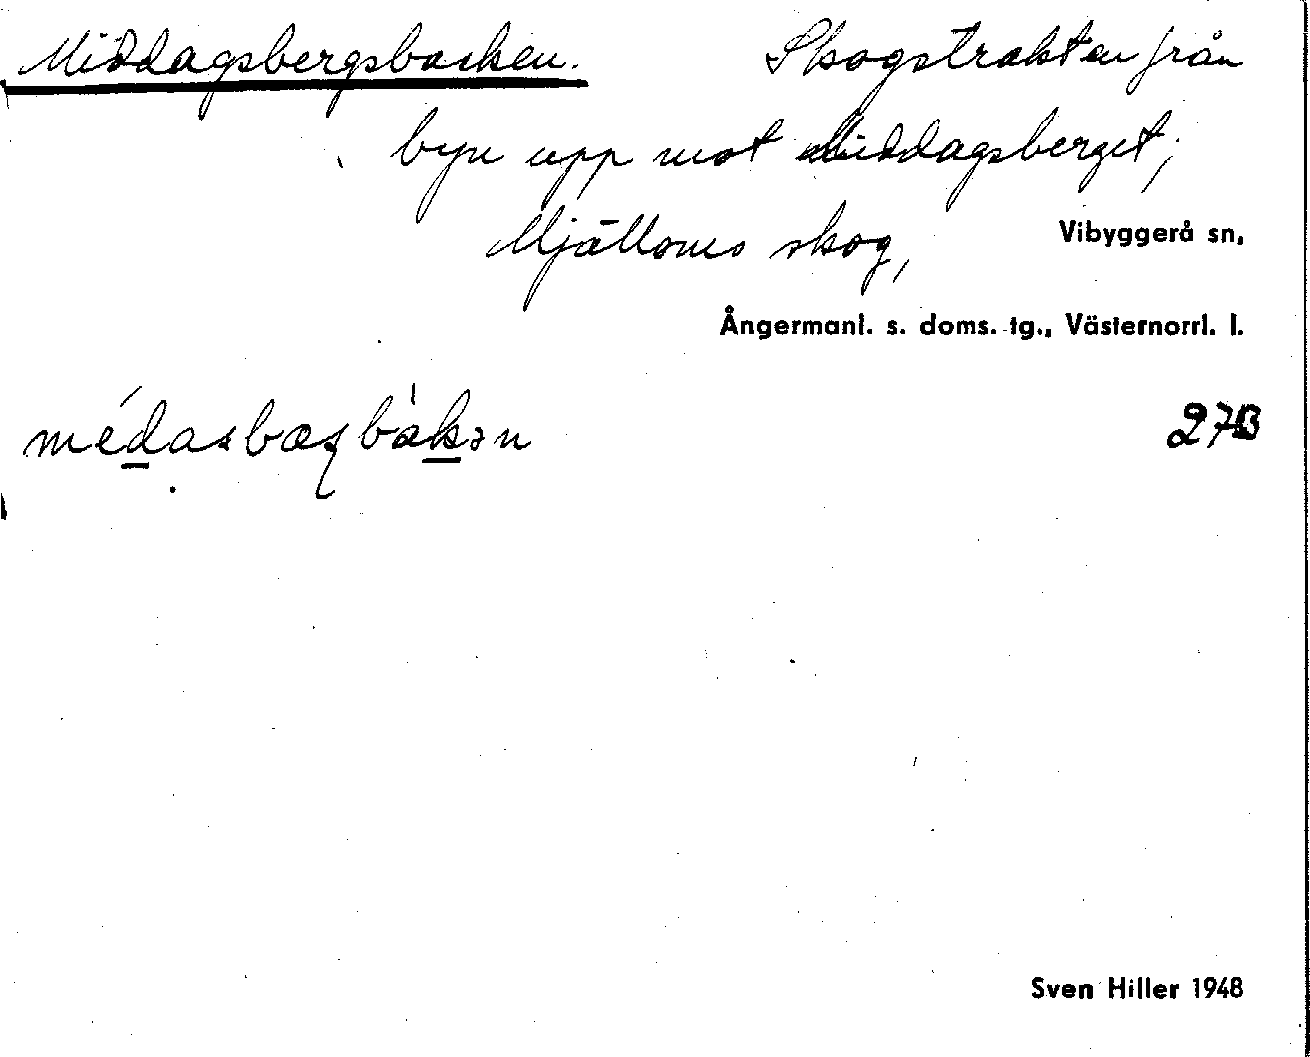 Middagsbergsbacken. Skogstrakten från
byn upp mot Middagsberget,
Mjälloms skog, Vibyggerå sn,
Ångermanl. s. doms. tg., Västernorrl. l.
médasbæʂbàkən 27B
Sven Hiller 1948